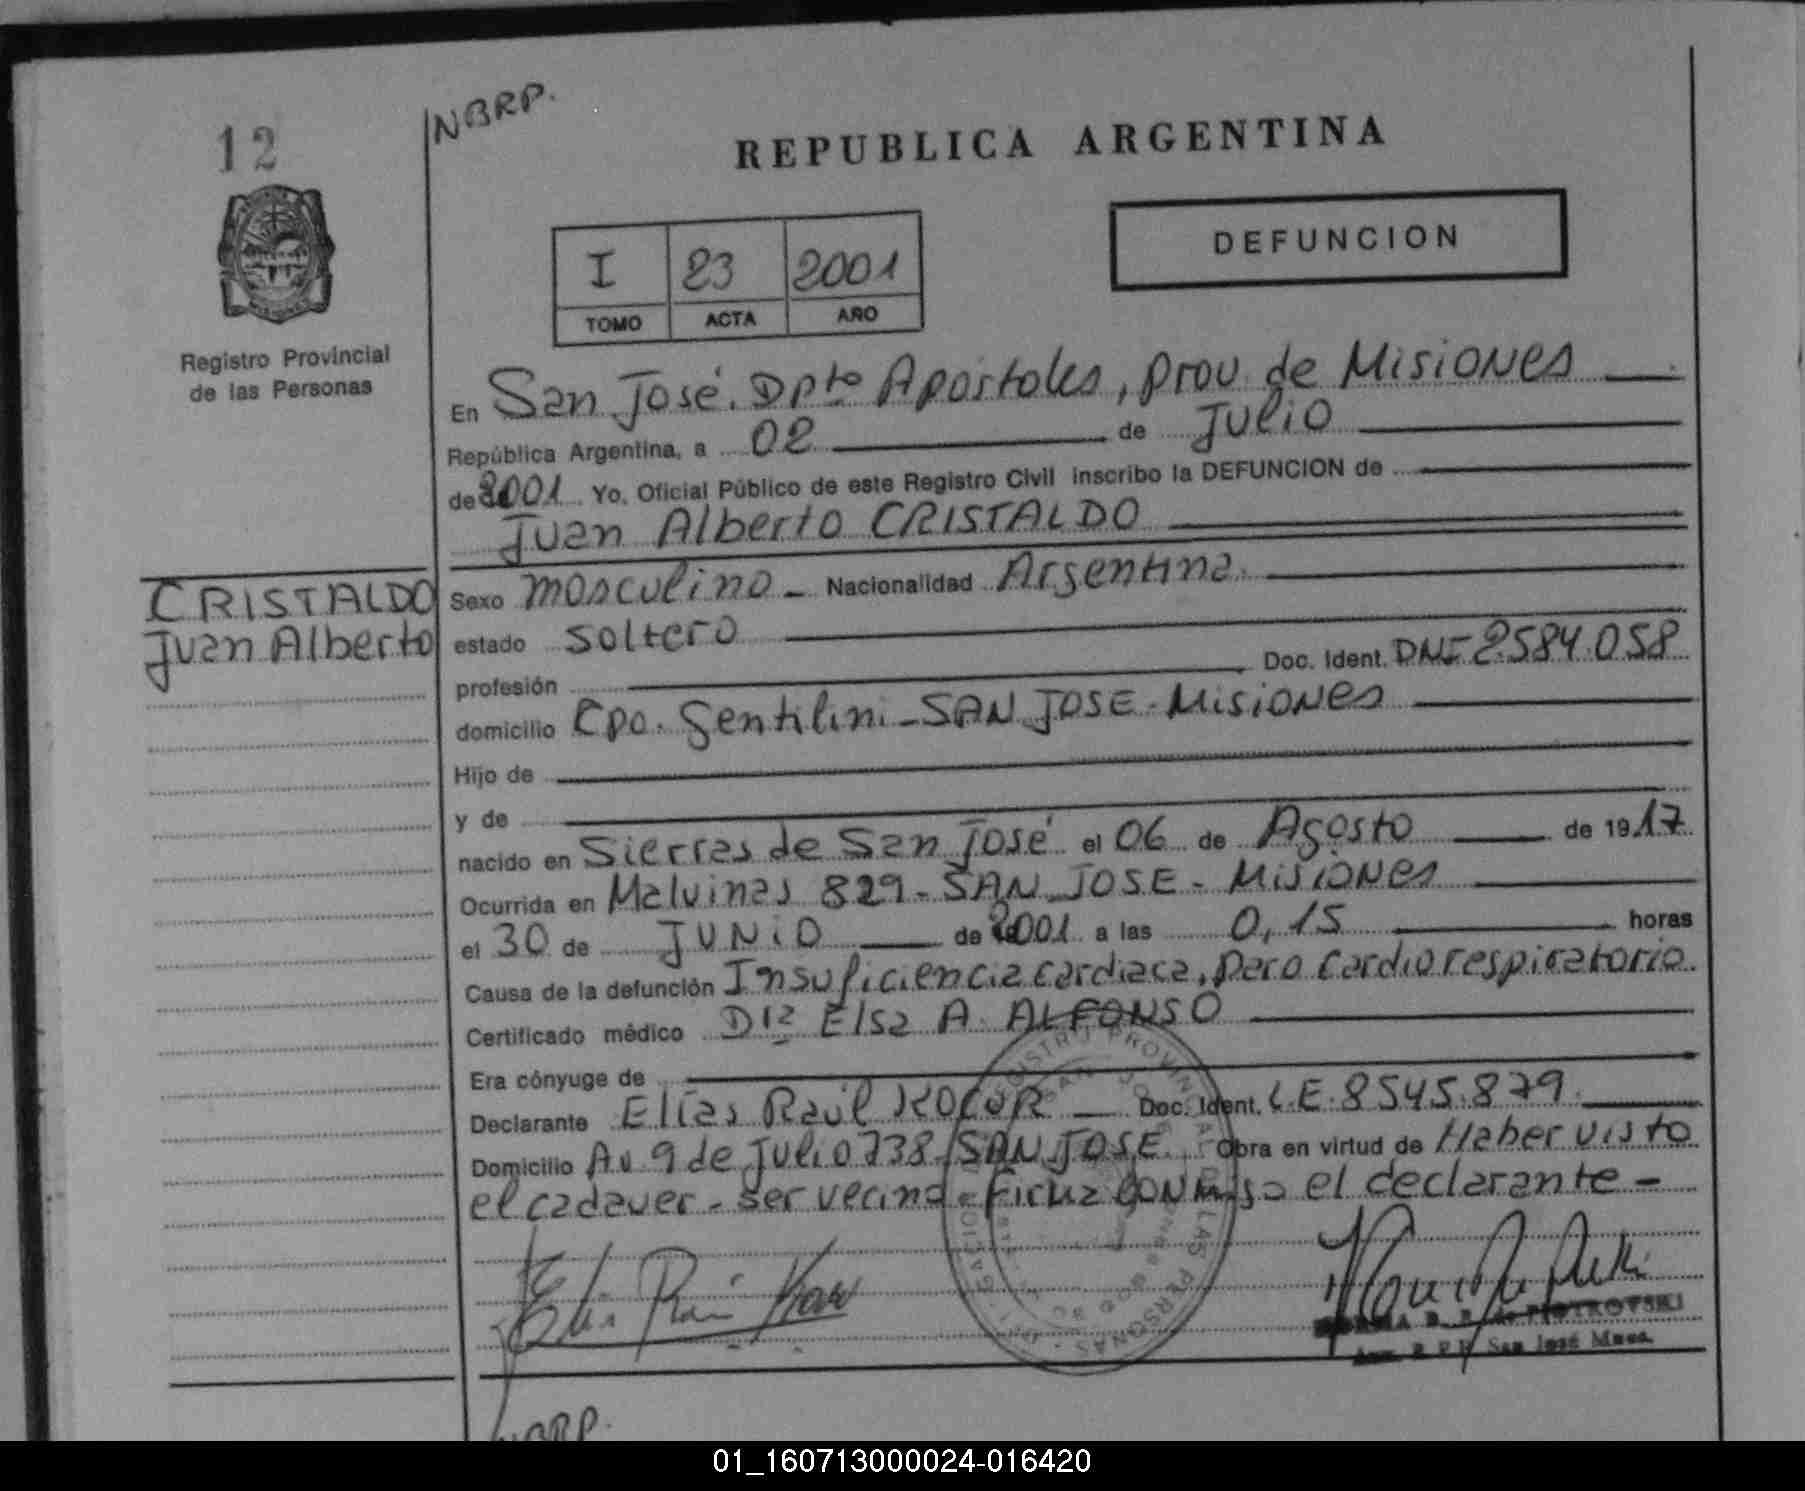 12
NBRP.
REPUBLICA ARGENTINA
I 23 2001
TOMO ACTA AÑO
DEFUNCION
Registro Provincial
de las Personas
En San José. Dpto Apóstoles, prov. de Misiones
República Argentina, a 02 de Julio
de 2001 Yo, Oficial Público de este Registro Civil inscribo la DEFUNCION de
Juan Alberto CRISTALDO
CRISTALDO
Juan Alberto
Sexo masculino - Nacionalidad Argentina.
estado soltero
profesión Doc. Ident. DNI 2.584.058
domicilio Cpo. Gentilini - SAN JOSE - Misiones
Hijo de
y de
nacido en Sierras de San José el 06 de Agosto de 1917
Ocurrida en Malvinas 829 - SAN JOSE - Misiones
el 30 de JUNIO de 2001 a las 0,15 horas
Causa de la defunción Insuficiencia cardiaca, paro cardiorespiratorio.
Certificado médico Dra Elsa A. ALFONSO
Era cónyuge de
Declarante Elías Raúl KOCUR - Doc. Ident. L.E. 8545.879.
Domicilio Av 9 de Julio 738 - SAN JOSE. Obra en virtud de Haber visto
el cadaver - ser vecino - Firma CONmigo el declarante -
REGISTRO PROVINCIAL DE LAS PERSONAS
SAN JOSE
PIOTROVSKI
San José Mnes.
NBRP.
01_160713000024-016420